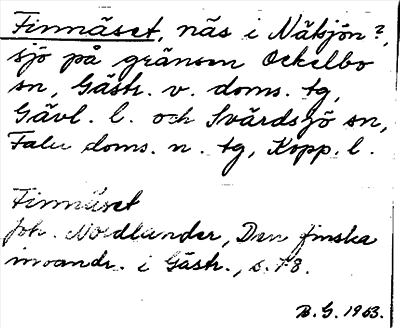 Finnäset, näs i Näksjön?,
sjö på gränsen Ockelbo
sn, Gästr. v. doms. tg,
Gävl. l. och Svärdsjö sn,
Falu doms. n. tg, Kopp. l.
Finnäset
Joh. Nordlander, Den finska
invandr. i Gästr., s. 78.
B.G. 1963.